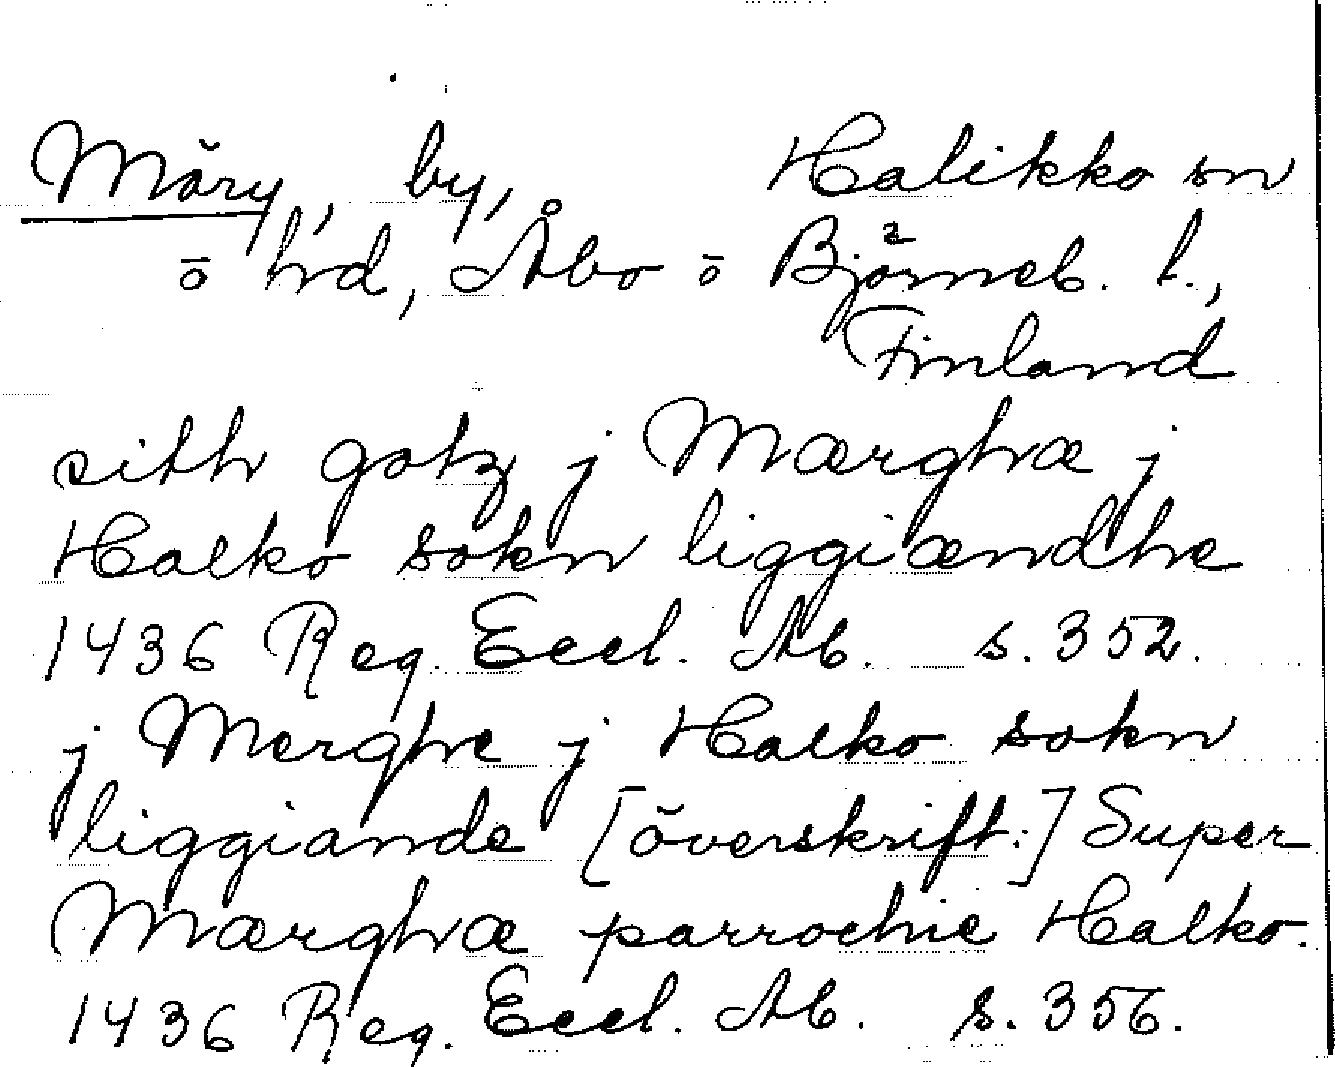 Märy, by, Halikko sn
o hd, Åbo o Björneb. l.,
Finland
sith gotz j Mærghæ j
Halko sokn liggiændhe
1436 Reg. Eccl. Ab. s. 352.
j Merghe j Halko sokn
liggiande [överskrift:] Super
Mærghæ parrochie Halko.
1436 Reg. Eccl. Ab. s. 356.